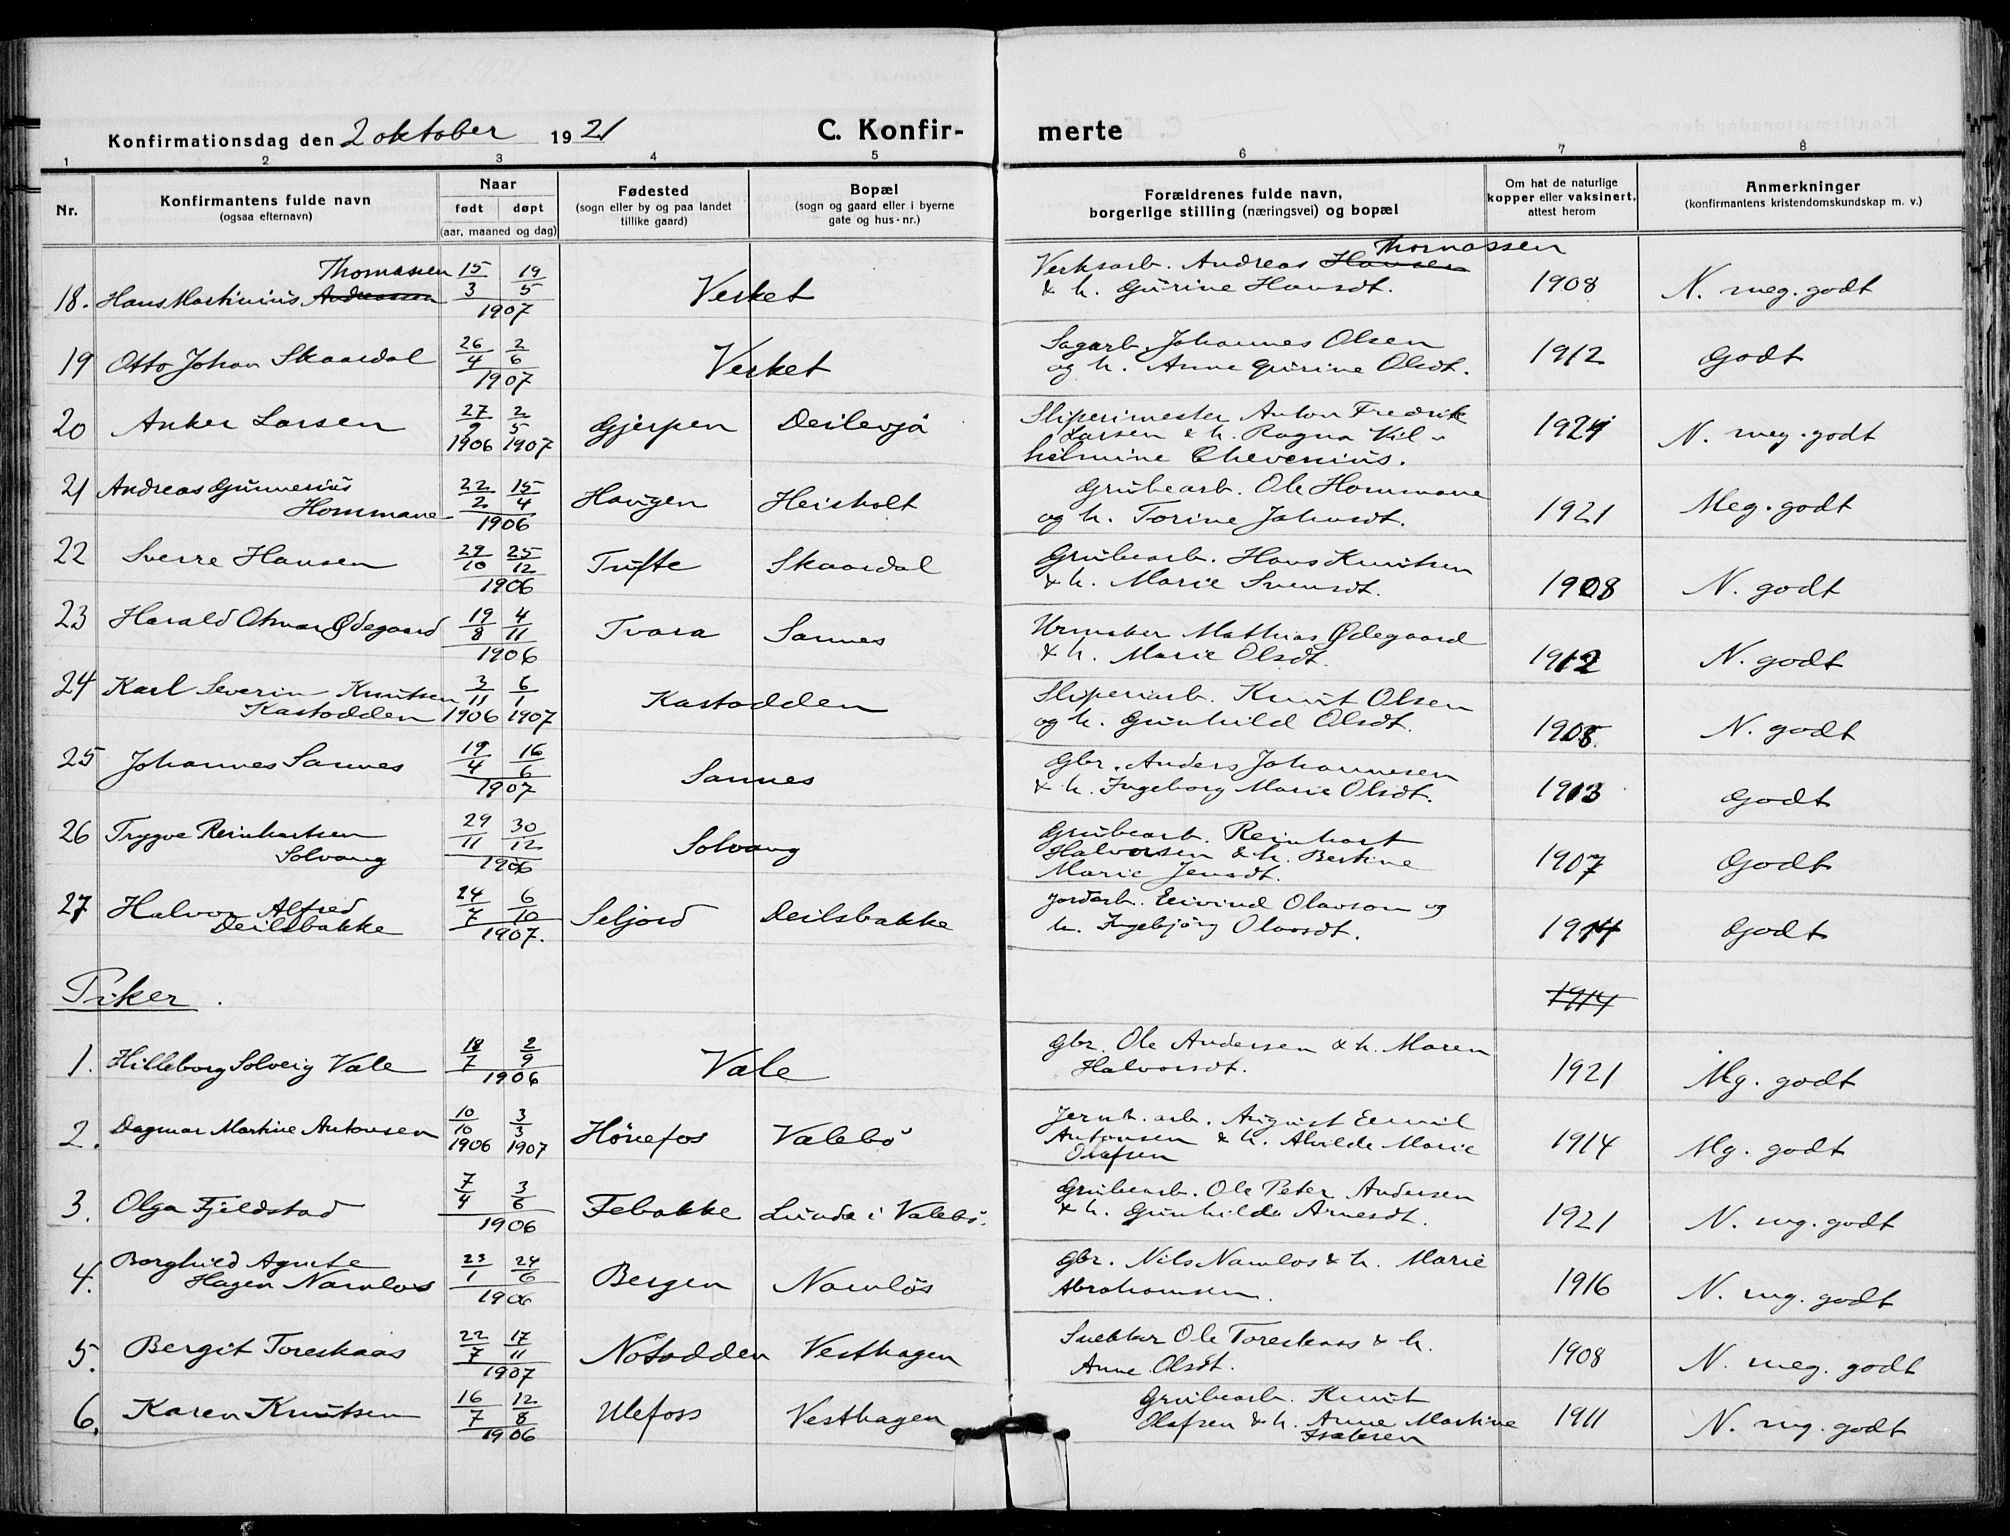 Konfirmationsdag den 2 oktober 1921 C. Konfir- merte
1 2 3 4 5 6 7 8
Nr. Konfirmantens fulde navn (ogsaa efternavn) Naar født døpt (aar, maaned og dag) Fødested (sogn eller by og paa landet tillike gaard) Bopæl (sogn og gaard eller i byerne gate og hus-nr.) Forældrenes fulde navn, borgerlige stilling (næringsvei) og bopæl Om hat de naturlige kopper eller vaksinert, attest herom Anmerkninger (konfirmantens kristendomskundskap m. v.)
Thomassen 15 19 Thomassen
18. Hans Martinius Andreassen 3 5 1907 Verket Verksarb. Andreas Hansen & h. Gurine Hansdt. 1908 N. meg. godt
19 Otto Johan Skaardal 26/4 2/6 1907 Verket Sagarb. Johannes Olsen og h. Anne Gurine Olsdt. 1912 Godt
20 Anker Larsen 27/9 1906 2/5 1907 Gjerpen Deilevja Sliperimester Anton Fredrik Larsen & h. Ragna Vilhelmine Chevenius. 1921 N. meg. godt
21 Andreas Gunnerius Hommane 22/2 15/4 1906 Haugen Heisholt Grubearb. Ole Hommane og h. Torine Johnsdt. 1921 Meg. godt
22 Sverre Hansen 29/10 25/12 1906 Tufte Skaardal Grubearb. Hans Knutsen & h. Marie Svensdt. 1908 N. godt
23 Harald Otmar Ødegaard 19/8 4/11 1906 Tvara Sannes Urmaker Mathias Ødegaard & h. Marie Olsdt. 1912 N. godt
24 Karl Severin Knutsen Kastodden 3/11 1906 6/1 1907 Kastodden Sliperiarb. Knut Olsen og h. Gunhild Olsdt. 1908. N. godt
25 Johannes Sannes 19/4 16/6 1907 Sannes Gbr. Anders Johannesen & h. Ingeborg Marie Olsdt. 1913 Godt
26 Trygve Reinhartsen Solvang 29/11 30/12 1906 Solvang Grubearb. Reinhart Halvorsen & h. Bertine Marie Jensdt. 1907 Godt
27 Halvor Alfred Deilsbakke 24/7 6/10 1907. Seljord Deilsbakke Jordarb. Eivind Olavson og h. Ingebjørg Olavsdt. 1914 Godt
Piker. 1914
1. Hilleborg Solveig Vale 18/7 2/9 1906 Vale Gbr. Ole Andersen & h. Maren Halvorsdt. 1921 Mg. godt
2. Dagmar Martine Antonsen 10/10 1906 3/3 1907 Hønefos Valebø Jernb. arb. August Eemil Antonsen & h. Alvilde Marie Olafsen 1914 Mg. godt
3. Olga Fjeldstad 7/4 3/6 1906 Febakke Lunde i Valebø. Grubearb. Ole Peter Andersen & h. Gunhilde Arnesdt. 1921 N. mg. godt
4. Borghild Agnete Hagen Namløs 23/1 24/6 1906 Bergen Namløs Gbr. Nils Namløs & h. Marie Abrahamsen. 1916 N. mg. godt
5. Bergit Toreskaas 22/7 17/11 1907 Notodden Vesthagen Snekker Ole Toreskaas & h. Anne Olsdt. 1908 N. meg. godt
6. Karen Knutsen 16/7 12/8 1906 Ulefoss Vesthagen Grubearb. Knut Olafsen & h. Anne Martine Isaksen 1911 N. mg. godt